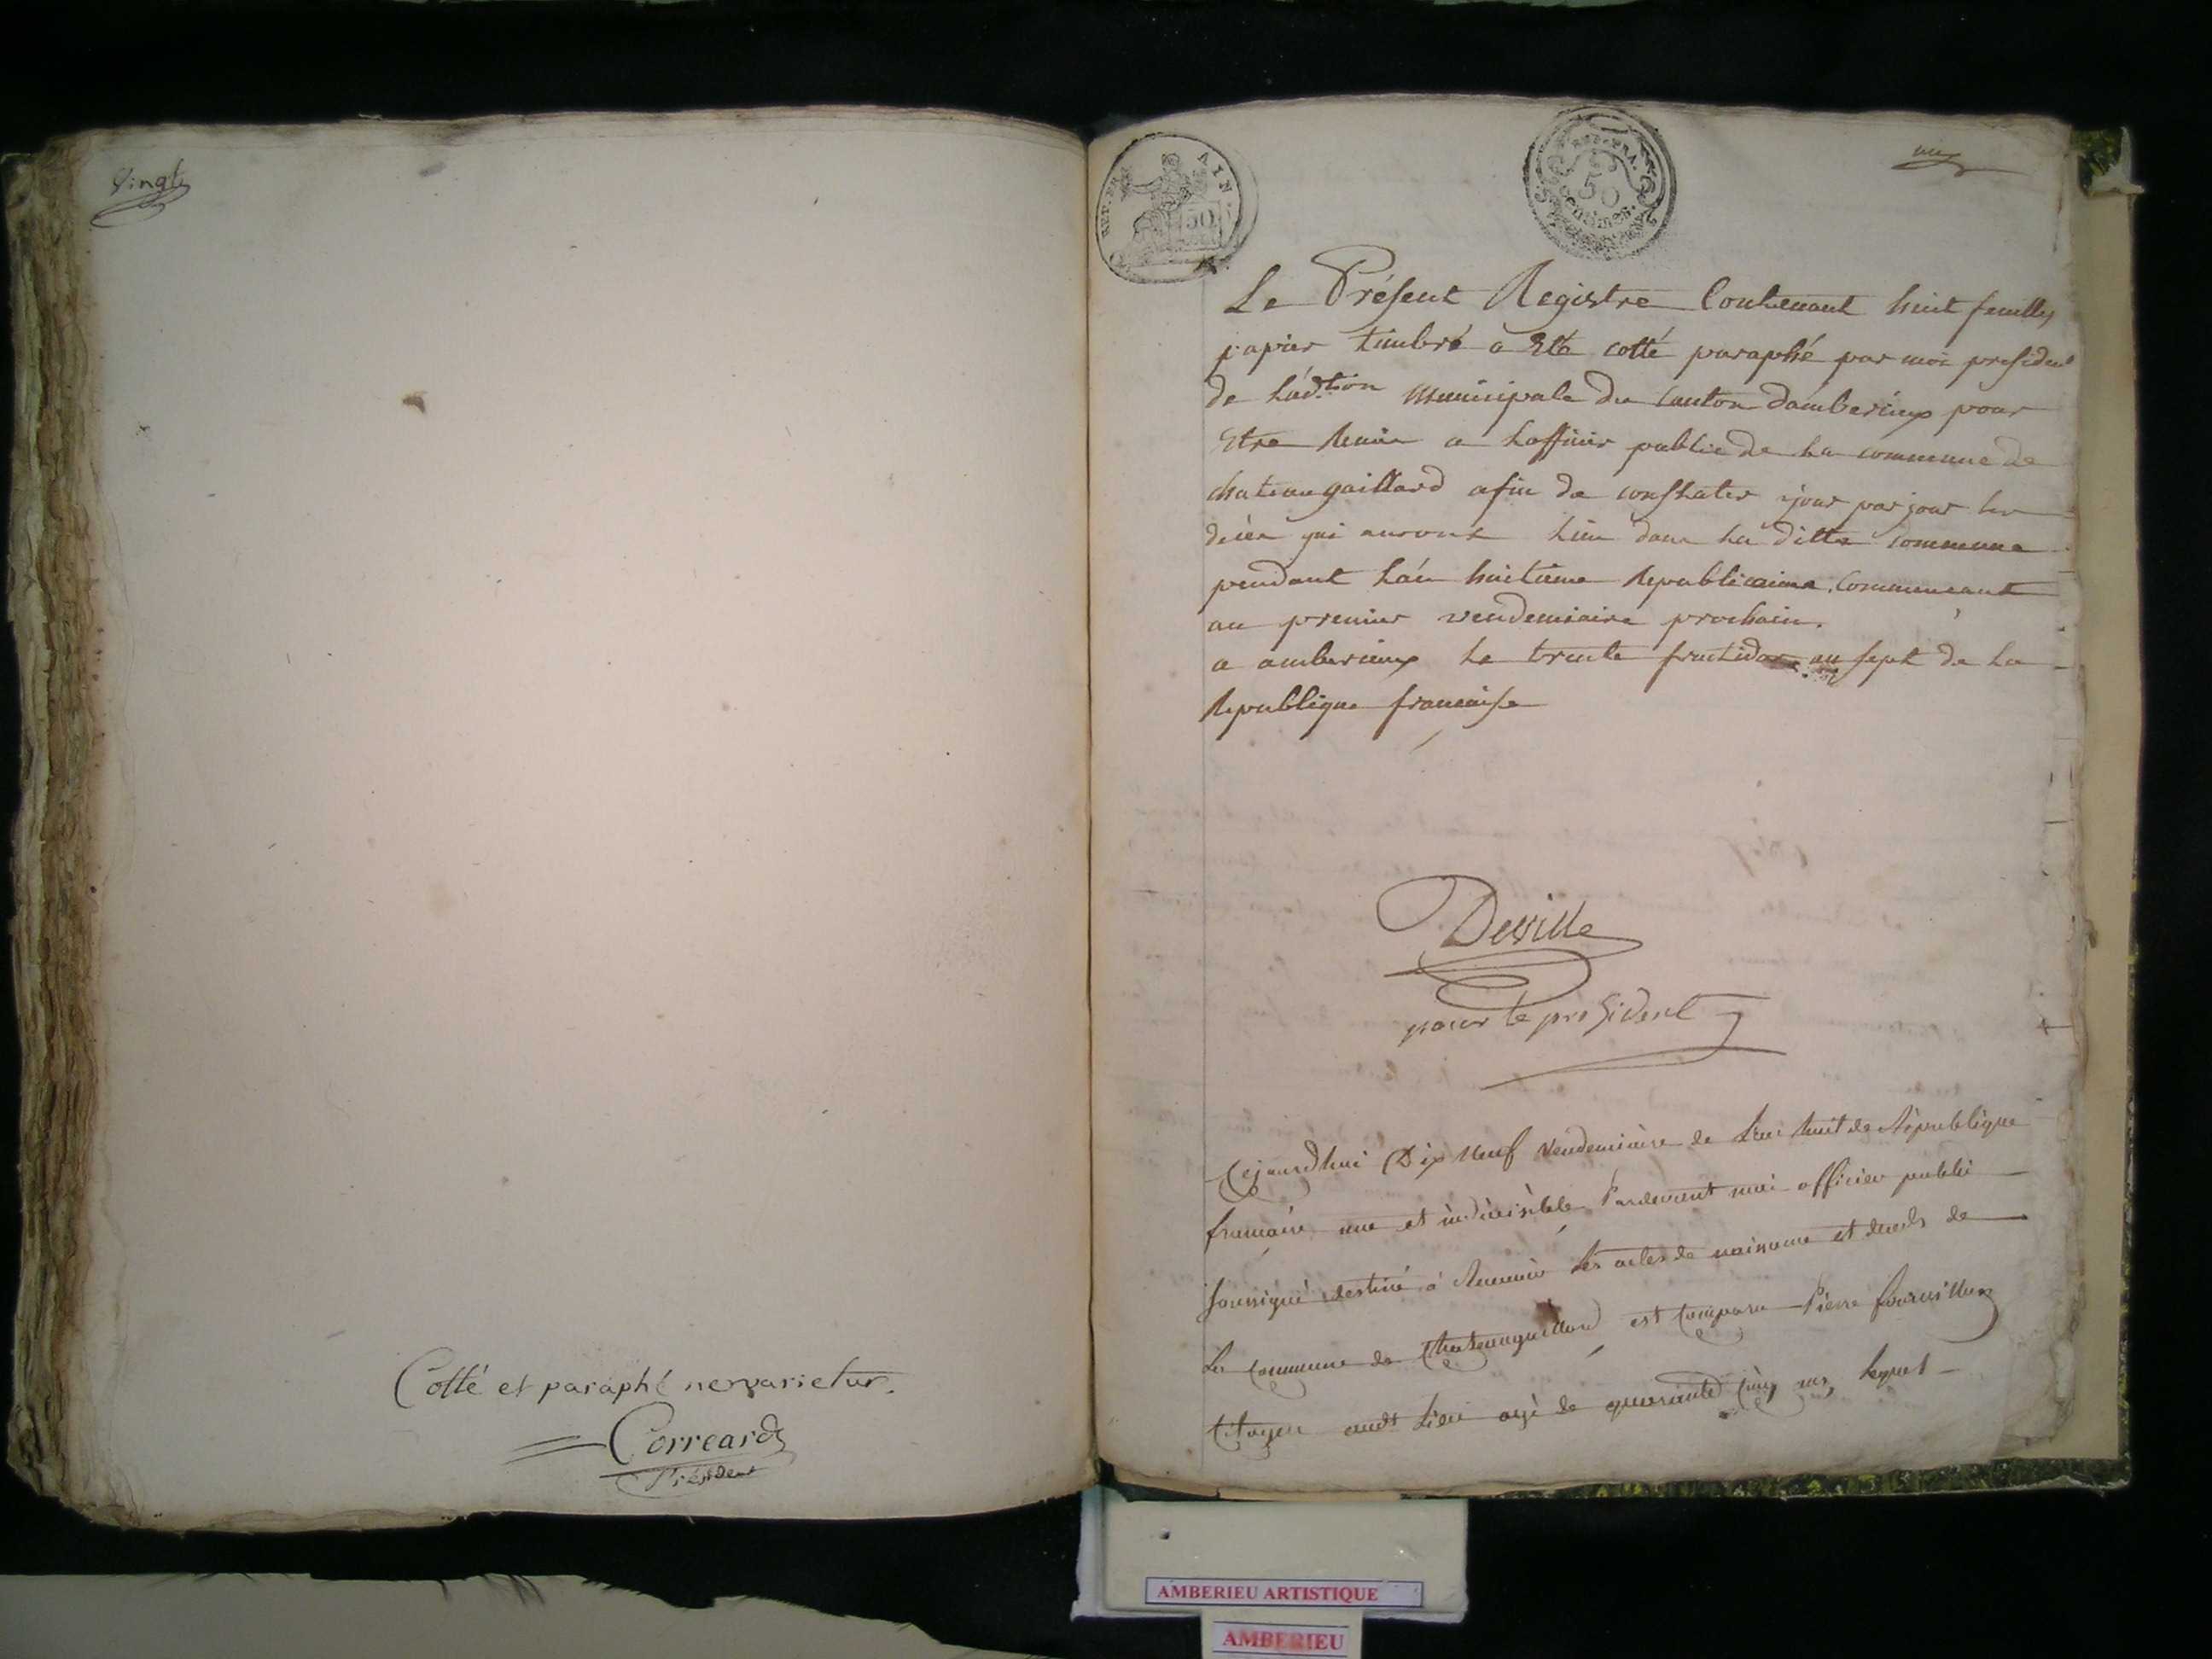 Vingt
Cotté et paraphé ne varietur.
Correard
Président
REP. FRA. AYN
50
REP. FRA.
50
Centimes.
un
Le Présent Registre Contenant huit feuilles
papier timbré a Eté cotté paraphé par moi president
de L'ad.tion municipale du Canton dambérieux pour
Etre Remis a Lofficier public de La commune de
chateaugaillard afin de constater jour par jour les
décès qui auront Lieu dans La ditte commune
pendant L'an huitieme Republicaine, Commencant
au premier vendemiaire prochain.
a amberieux Le trente fructidor an sept de La
Republique francaise
Deville
pour le president
Cejourdhui Dix Neuf Vendemiaire de L'an huit de République
francaise une et indivisible Pardevant moi officier public
soussigné destiné à Recevoir Les actes de naissance et deces de
La Commune de Chateaugaillard est Comparu Pierre
Citoyen audt Lieu agé de quarante Cinq ans, Lequel
AMBERIEU ARTISTIQUE
AMBERIEU